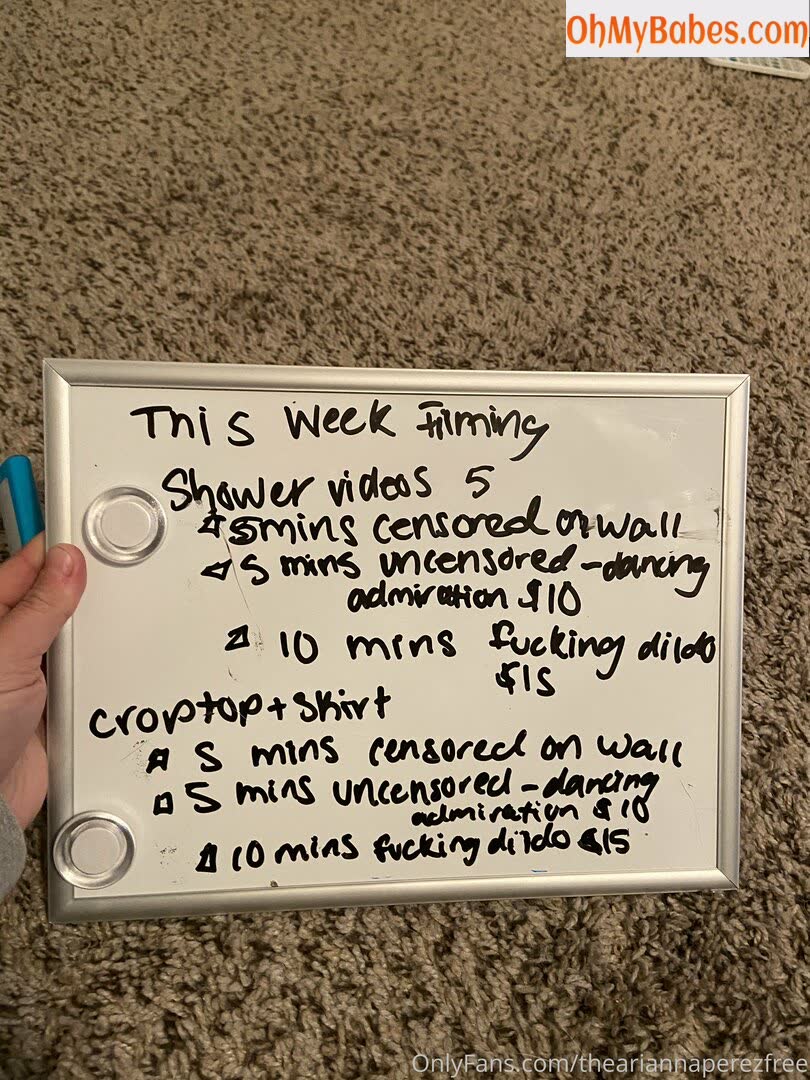 OhMyBabes.com
This Week Filming
Shower videos 5
5 mins censored on wall
5 mins uncensored - dancing
admiration $10
10 mins fucking dildo
$15
croptop + skirt
5 mins censored on wall
5 mins uncensored - dancing
admiration $10
10 mins fucking dildo $15
OnlyFans.com/theariannaperezfree